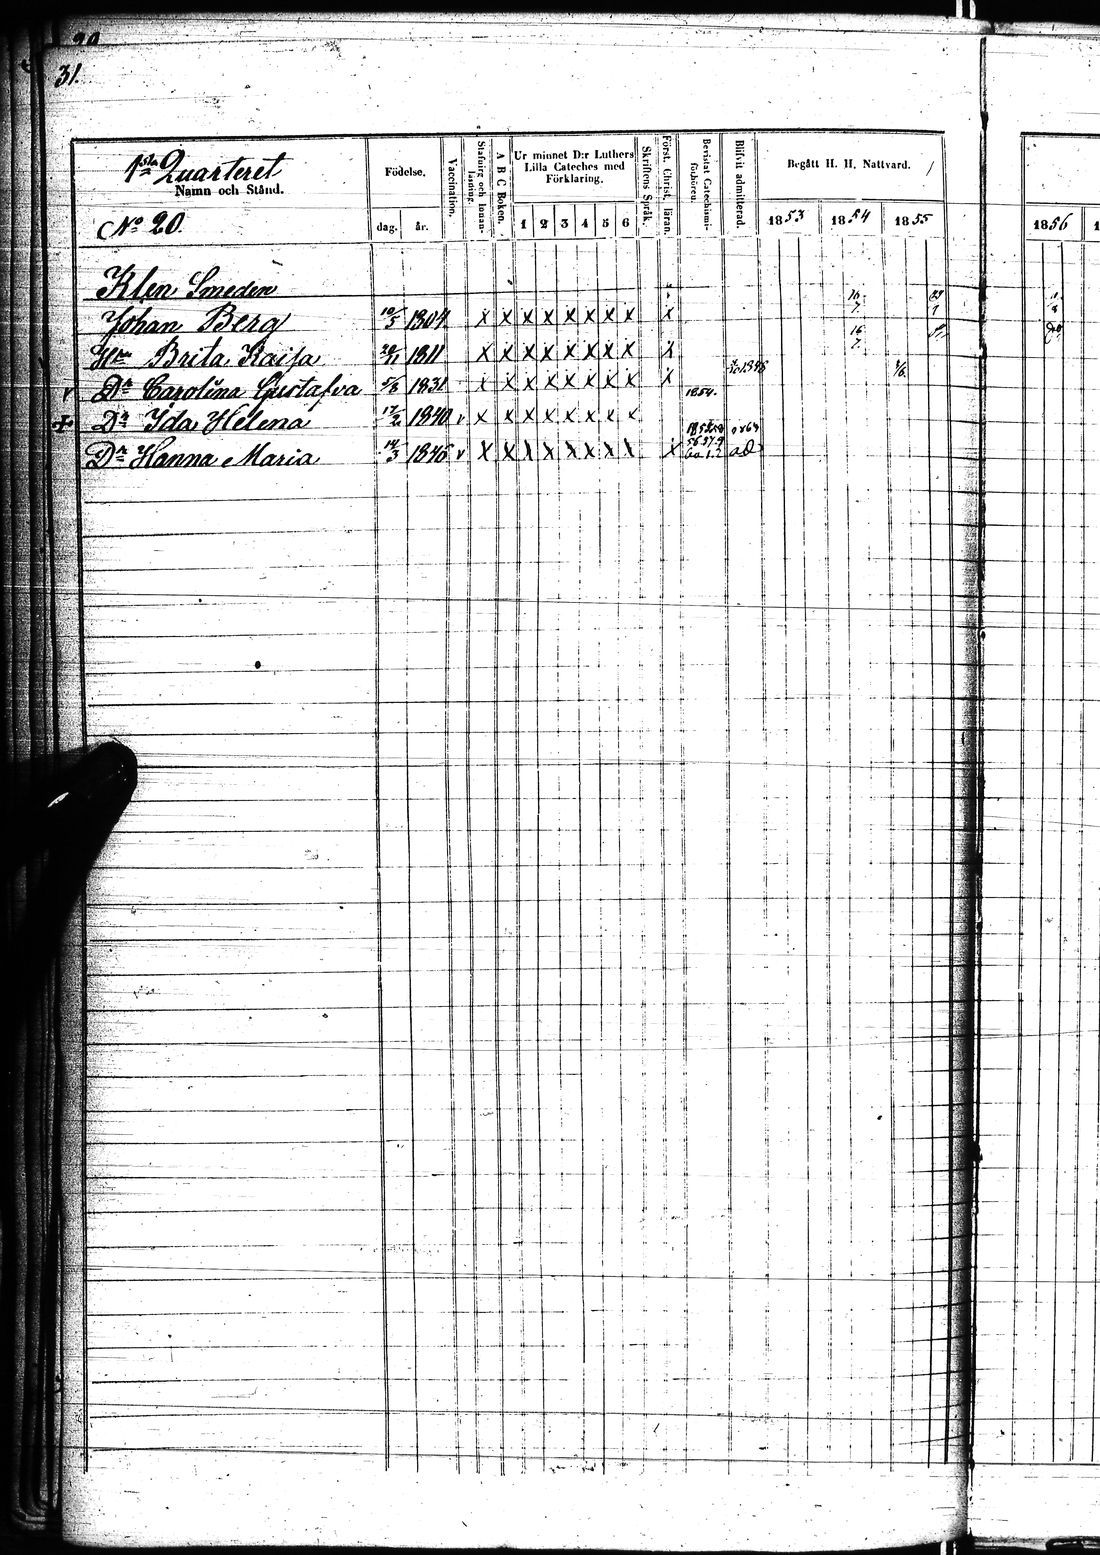 31.
1sta Quarteret
Namn och Stånd.
No 20.
Födelse.
dag. år.
Vaccination.
A B C Boken.
Ur minnet D:r Luthers
Lilla Cateches med
Förklaring.
1 2 3 4 5 6
Skriftens Språk.
Först. Christ. läran.
Bevistat Catechismi-
förhören.
Blifvit admitterad.
Begått H. H. Nattvard.
1853 1854 1855
1856
Klen Smeden
Johan Berg 10/5 1804 x x x x x x x x x
Hu Brita Kaisa 1811 x x x x x x x x x
Dr Carolina Gustafva 5/3 1831 x x x x x x x x x 1854.
Dr Ida Helena 17/2 1840 v x x x x x x x x
Dr Hanna Maria 14/3 1845 v x x x x x x x x x ad